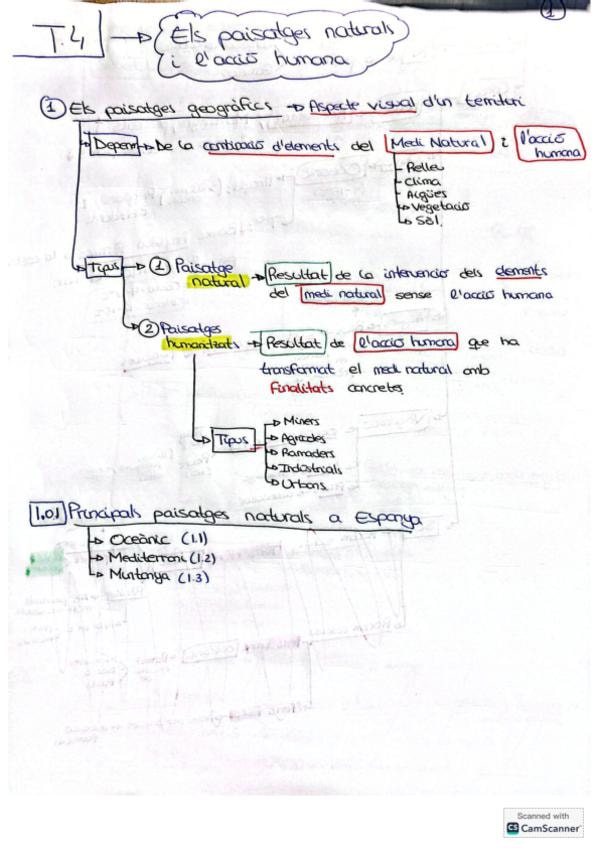 1
T.4 → Els paisatges naturals
i l'acció humana
① Els paisatges geogràfics → Aspecte visual d'un territori
Depenen → De la combinació d'elements del Medi Natural i l'acció humana
- Relleu
- Clima
- Aigües
→ Vegetació
→ Sòl.
Tipus → ① Paisatge natural → Resultat de la intervenció dels elements
del medi natural sense l'acció humana
② Paisatges humanitzats → Resultat de l'acció humana que ha
transformat el medi natural amb
finalitats concretes.
Tipus → Miners
→ Agrícoles
→ Ramaders
→ Industrials
→ Urbans.
1.01 Principals paisatges naturals a Espanya
→ Oceànic (1.1)
→ Mediterrani (1.2)
→ Muntanya (1.3)
Scanned with
CS CamScanner